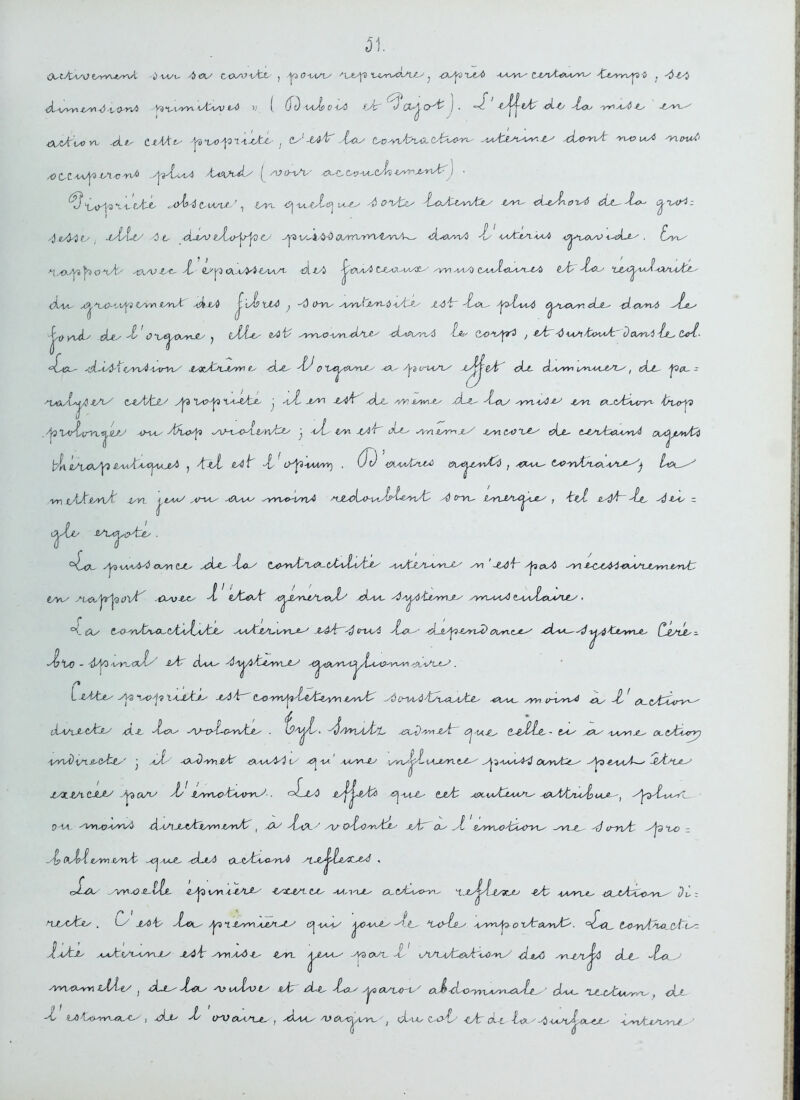 51.
activement sur sa cavité, pour reprendre, après un certain temps, ses
dimensions primitives » (Dubois et Pajot). L'effet de la mise en
action de cette propriété, c'est la contraction utérine dont nous nous
occuperons plus tard (voir accouchement).
Propriété obscure, en quelque sorte latente en dehors de la gros=
sesse, elle se développe puissamment dans l'utérus gravide. En
rapport avec l'épaisseur des faisceaux musculaires et la régularité
du groupement des fibres, son intensité est la plus grande dans le
fond de l'organe, elle est moindre dans le corps, et surtout dans le col.
La distension extrême de l'organe a pour effet de diminuer, de pa=
ralyser cette propriété ; il en est de même de la mise en action trop
prolongée ou trop violente ; il en est de même encore de certains agents
thérapeutiques, tel est l'opium. D'autres agents, au contraire, la
mettent en jeu ou au moins redoublent son énergie, tel est le sei=
gle ergoté.
La puissance de la contractilité utérine n'est pas nécessairement
en rapport avec l'état général du système musculaire.
La contractilité utérine est sous la dépendance du système Céré=
bro-spinal et du système ganglionnaire.
Cette propriété est complètement soustraite au moins à l'action
directe de la volonté. Tyl. Smitz admet que celle-ci a une action
indirecte ; il admet aussi qu' une influence puissante peut être
exercée par l'émotion. Les effets que cet auteur attribue, plus
ou moins directement, à la volonté et à l'émotion ne sont pro=
bablement que des actions réflexes.
La moelle épinière exerce une action réflexe et une action di=
recte. C'est la première qui joue le rôle important. La contracti=
lité utérine est mise en jeu par l'irritation des nerfs de la
mamelle, de la vulve et de la paroi abdominale du rectum, de
l'estomac, de l'ovaire, du vagin, du col et de la surface interne